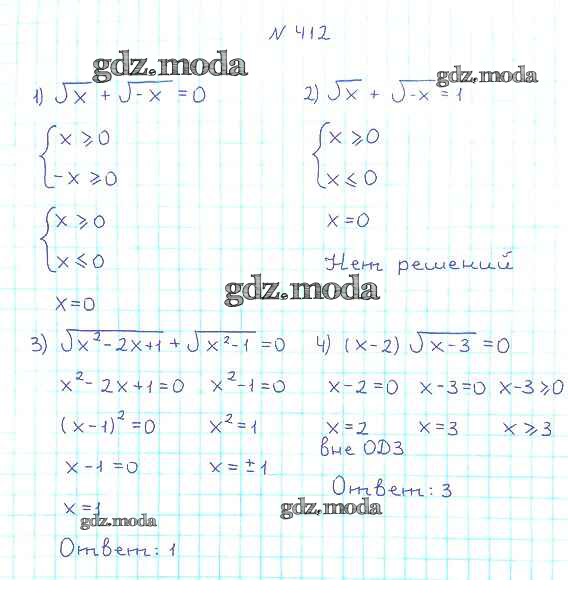 N 412
gdz.moda
gdz.moda
1) √x + √-x = 0
{ x ⩾ 0
-x ⩾ 0
{ x ⩾ 0
x ⩽ 0
x = 0
2) √x + √-x = 1
{ x ⩾ 0
x ⩽ 0
x = 0
Нет решений
gdz.moda
3) √x²-2x+1 + √x²-1 = 0
x²-2x+1=0 x²-1=0
(x-1)²=0 x²=1
x-1=0 x=±1
x=1
gdz.moda
Ответ: 1
4) (x-2) √x-3 = 0
x-2=0 x-3=0 x-3⩾0
x=2 x=3 x⩾3
вне ОДЗ
Ответ: 3
gdz.moda